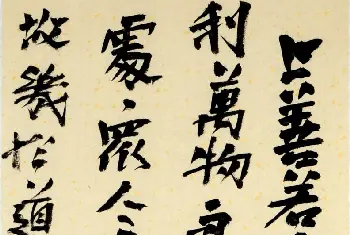 上善若
利萬物
處眾人
故幾於道